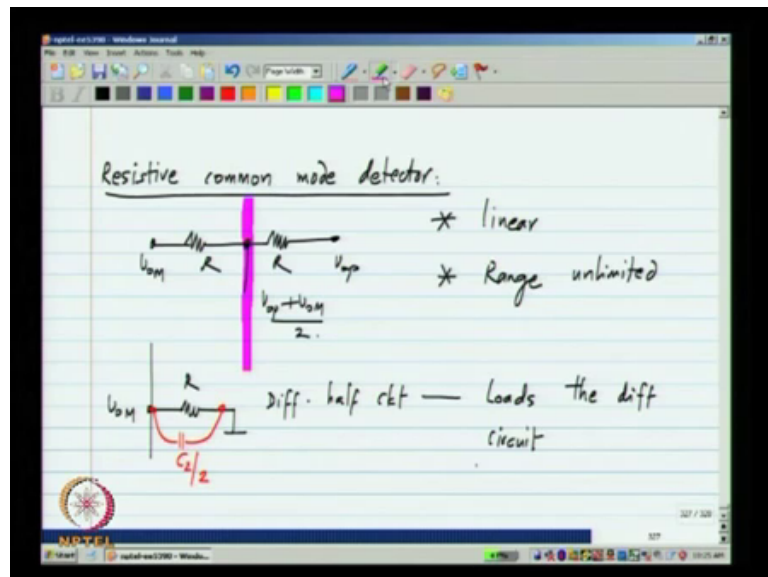 nptel-ee5390 - Windows Journal
File Edit View Insert Actions Tools Help
Page Width
B I
Resistive common mode detector:
* linear
VOM R R Vop
* Range unlimited
Vop + VOM
2.
R
VOM Diff. half ckt — Loads the diff
circuit
C2/2
327 / 328
NPTEL
327
Start nptel-ee5390 - Windo... 10:25 AM